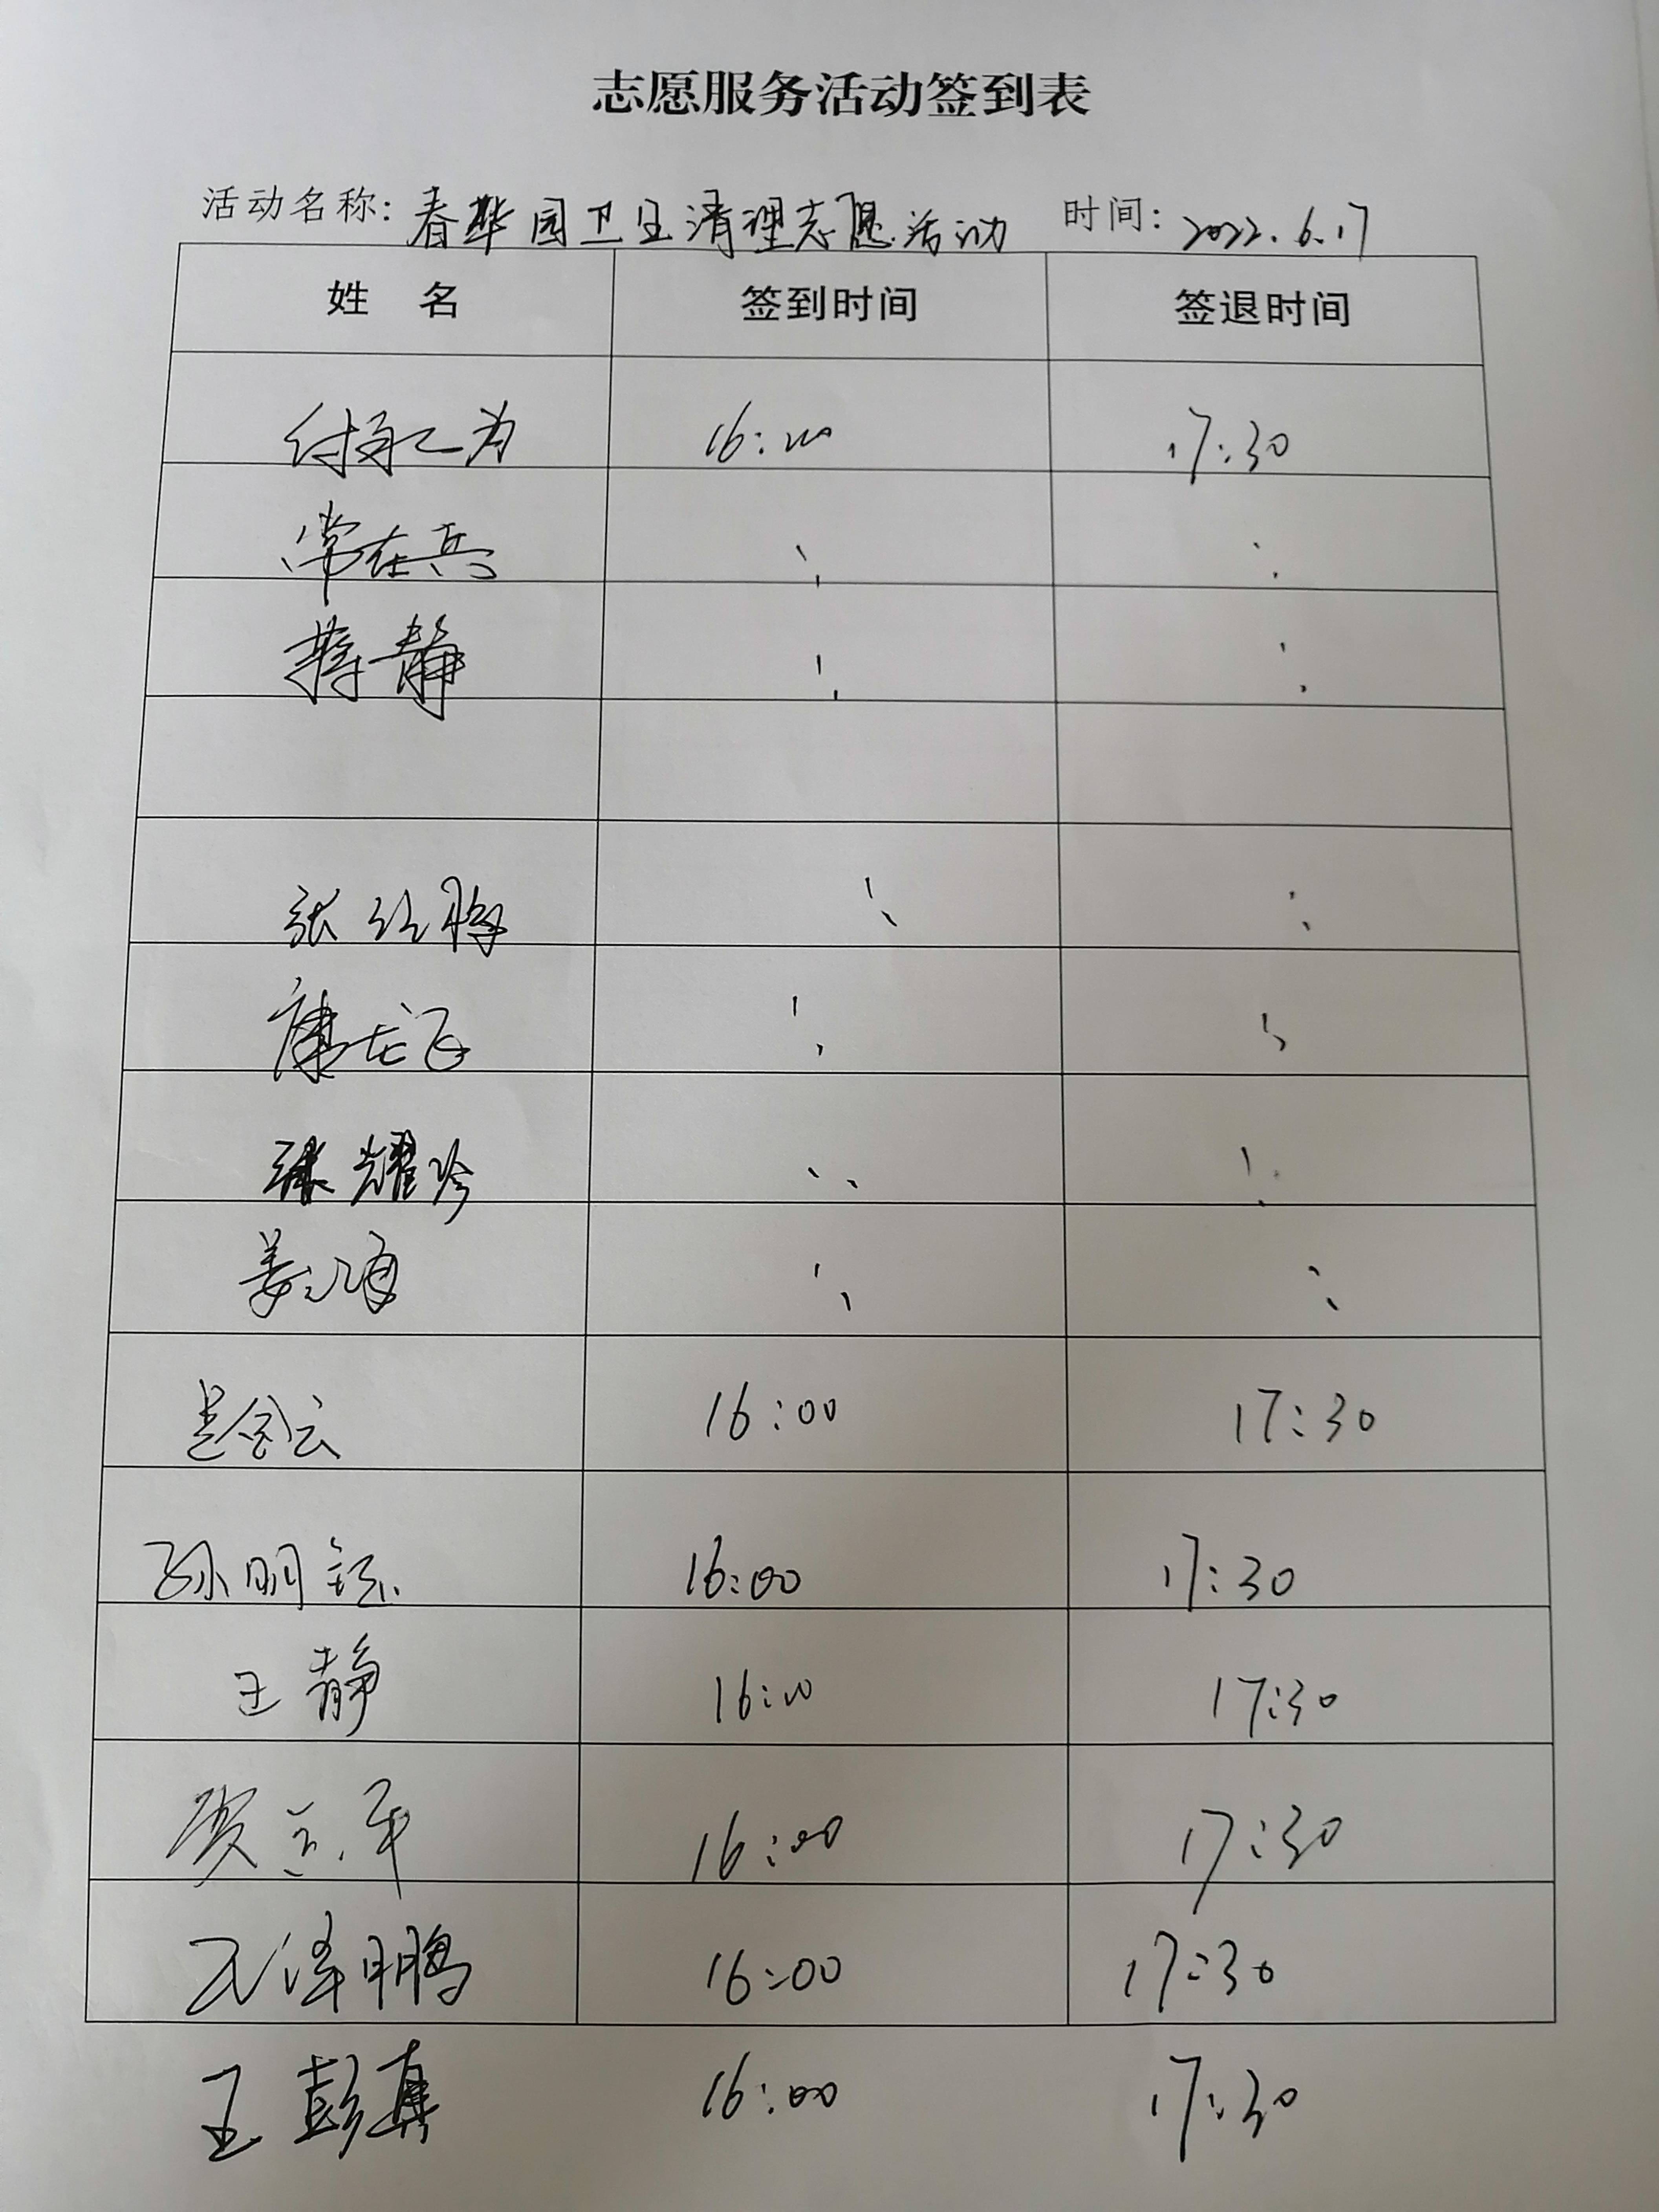 志愿服务活动签到表
活动名称: 春华园卫生清理志愿活动 时间: 2022.6.17
姓 名 签到时间 签退时间
16:00 17:30
常在兵
蒋静
张红梅
康龙飞
张耀珍
姜
16:00 17:30
孙明 16:00 17:30
王静 16:00 17:30
贺 平 16:00 17:30
王泽鹏 16:00 17:30
王彭真 16:00 17:30